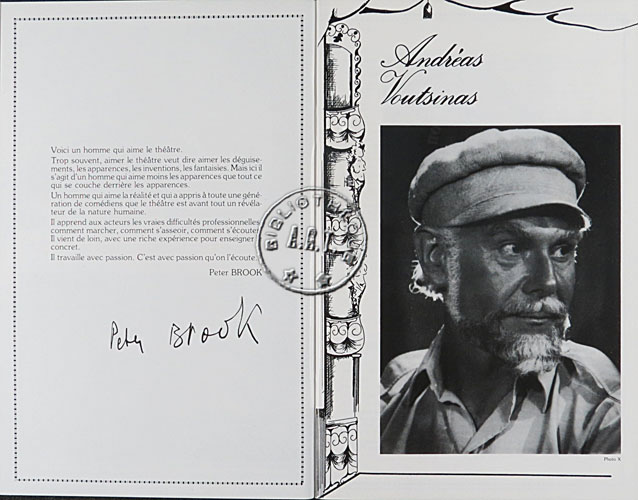 Voici un homme qui aime le théâtre.
Trop souvent, aimer le théâtre veut dire aimer les déguise-
ments, les apparences, les inventions, les fantaisies. Mais ici il
s'agit d'un homme qui aime moins les apparences que tout ce
qui se couche derrière les apparences.
Un homme qui aime la réalité et qui a appris à toute une géné-
ration de comédiens que le théâtre est avant tout un révéla-
teur de la nature humaine.
Il apprend aux acteurs les vraies difficultés professionnelles
comment marcher, comment s'asseoir, comment s'écouter
Il vient de loin, avec une riche expérience pour enseigner
concret.
Il travaille avec passion. C'est avec passion qu'on l'écoute.
Peter BROOK
Peter BROOK
Andréas
Voutsinas
Photo X